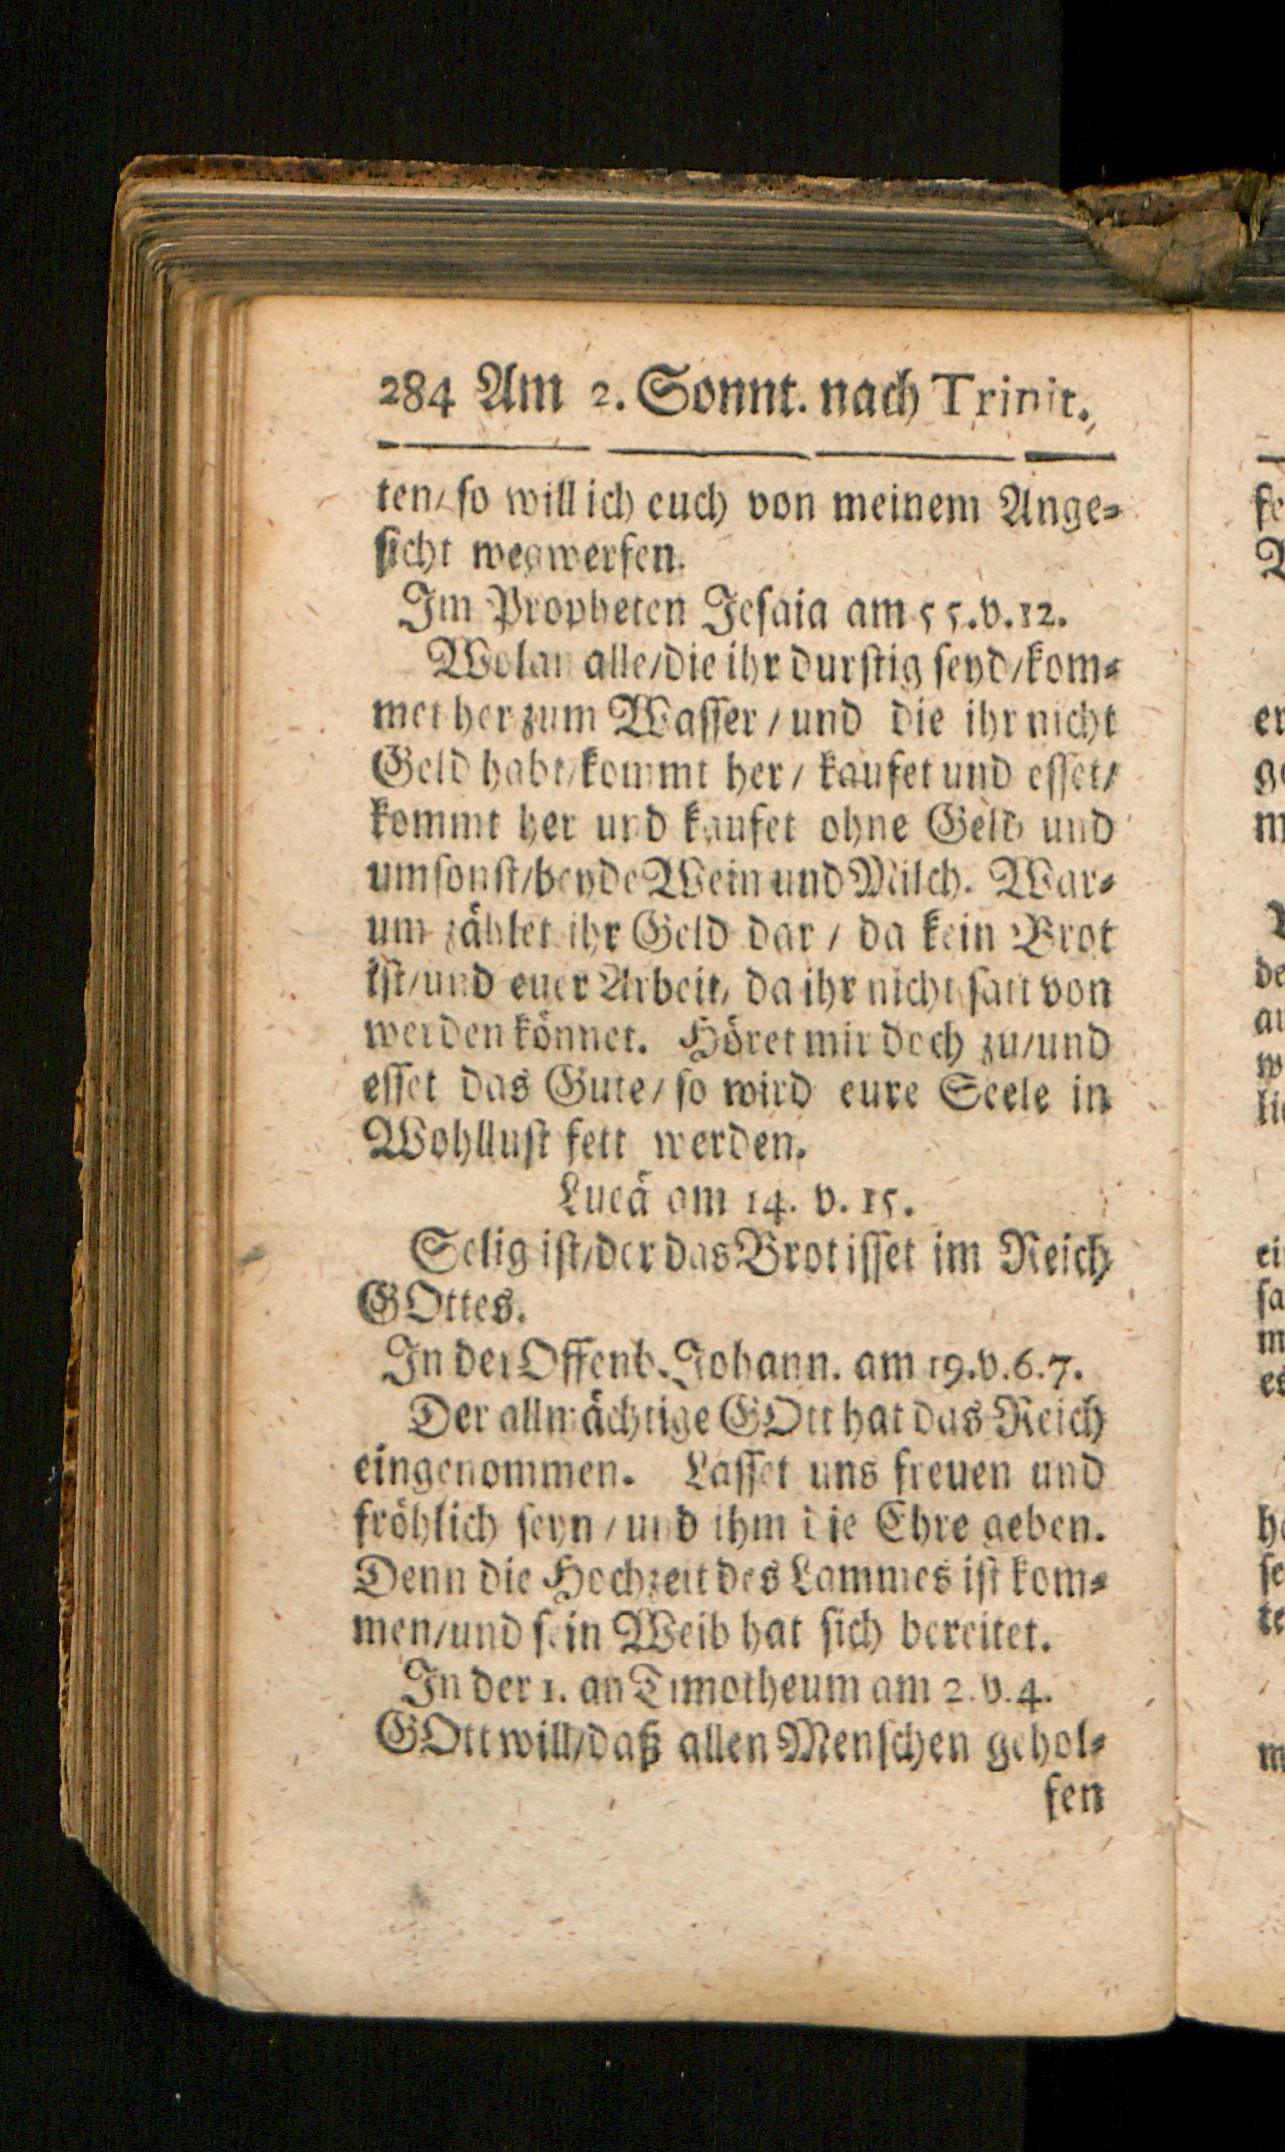 284 Am 2. Sonnt. nach Trinit.
ten/ so will ich euch von meinem Ange-
sicht wegwerfen.
Im Propheten Jesaia am 55.v.12.
Wolan alle/die ihr durstig seyd/kom-
met her zum Wasser / und die ihr nicht
Geld habt/kommt her / kaufet und esset/
kommt her und kaufet ohne Geld und
umsonst/beyde Wein und Milch. War-
um zählet ihr Geld dar / da kein Brot
ist/und euer Arbeit, da ihr nicht satt von
werden könnet. Höret mir doch zu/und
esset das Gute/ so wird eure Seele in
Wohllust fett werden.
Lucä am 14. v. 15.
Selig ist/der das Brot isset im Reich
GOttes.
In der Offenb. Johann. am 19.v.6.7.
Der allmächtige GOtt hat das Reich
eingenommen. Lasset uns freuen und
fröhlich seyn / und ihm die Ehre geben.
Denn die Hochzeit des Lammes ist kom-
men/und sein Weib hat sich bereitet.
In der 1. an Timotheum am 2.v.4.
GOtt will/daß allen Menschen gehol-
fen